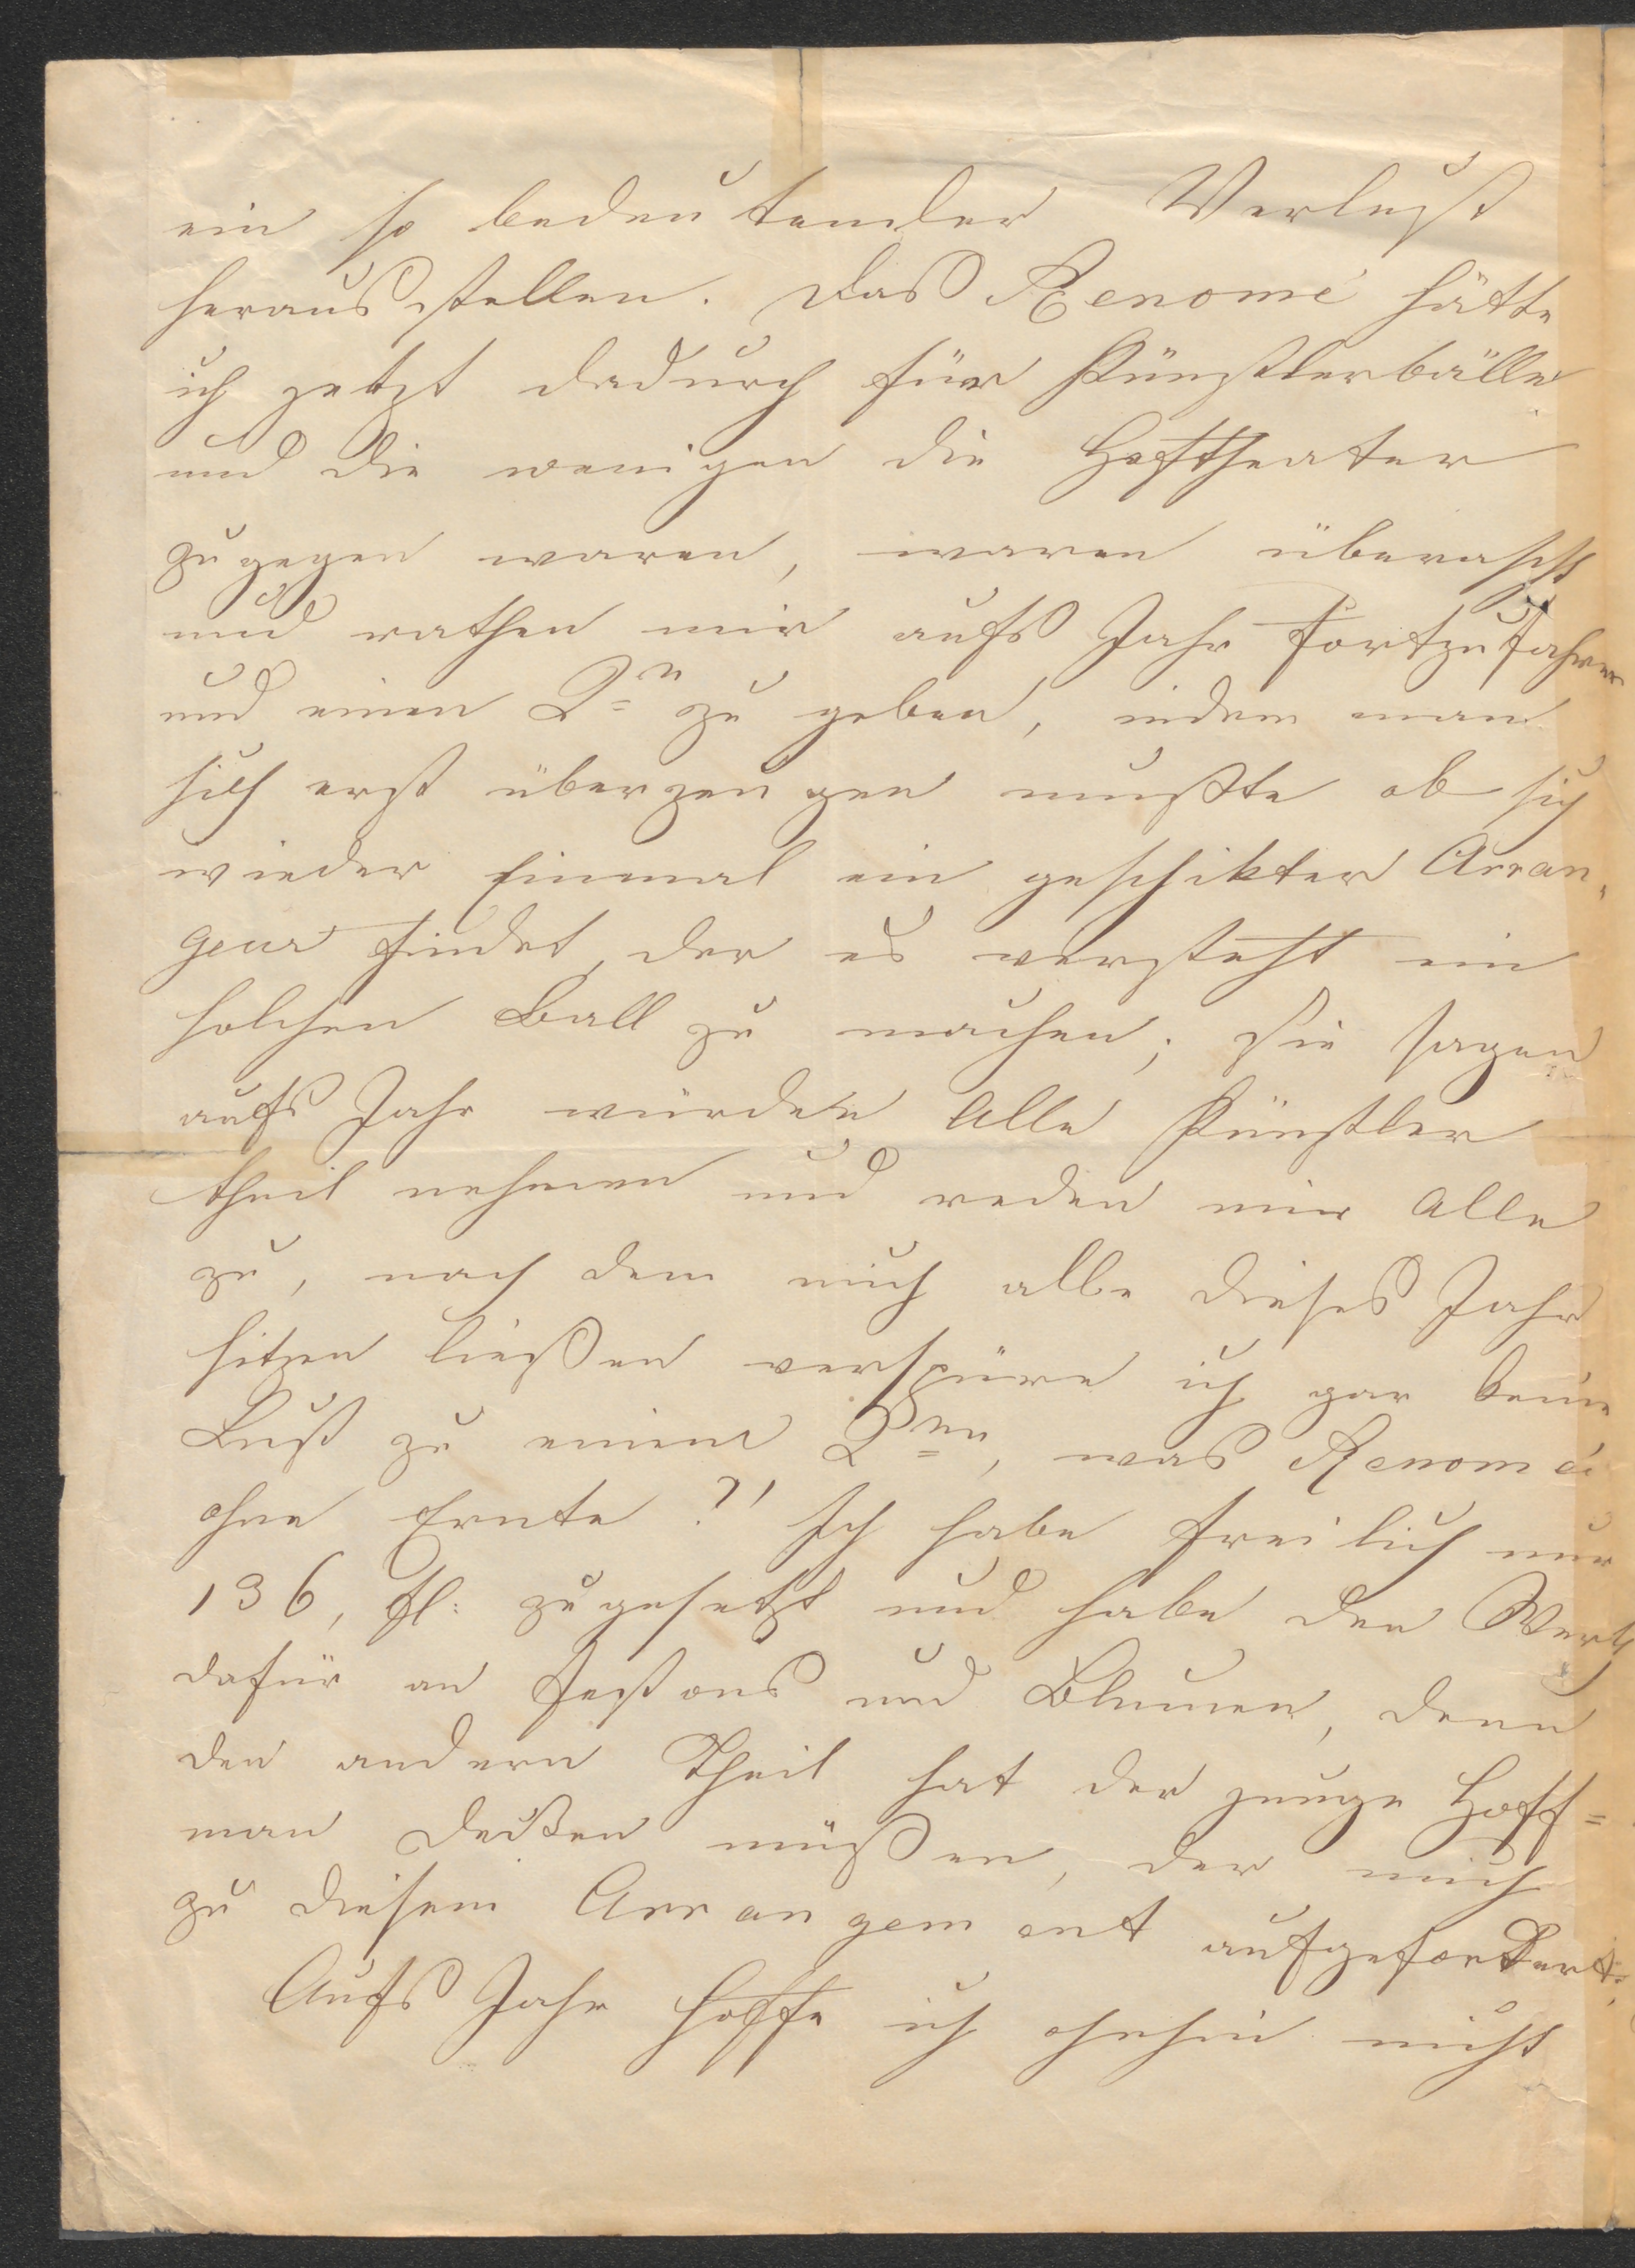 ein so bedeutender Verlust
herausstellen. Das Renomé hätte
ich jetzt dadurch für Künstlerbälle
und die wenigen die Hoftheater
zugegen waren, waren überascht
und rathen mir aufs Jahr fortzufahren
und einen 2n zu geben, indem man
sich erst überzeugen mußte ob sich
wieder Einmal ein geschikter Arran-
geur findet, der es versteht ein
solchen Ball zu machen; Sie sagen
aufs Jahr würden Alle Künstler
theil nehmen und reden mir Alle
zu, nach dem mich alle dieses Jahr
sitzen ließen verspüre ich gar keine
Lust zu einem 2en, was Renomé
ohne Ernte?! Ich habe freilich nur
136, fl: zugesetzt und habe den Werth
dafür an Festons und Blumen, denn
den andern Theil hat der junge Hoff=
man decken müßen, der mich
zu diesem Arrangement aufgefordert.
Aufs Jahr hoffe ich ohnhin nicht